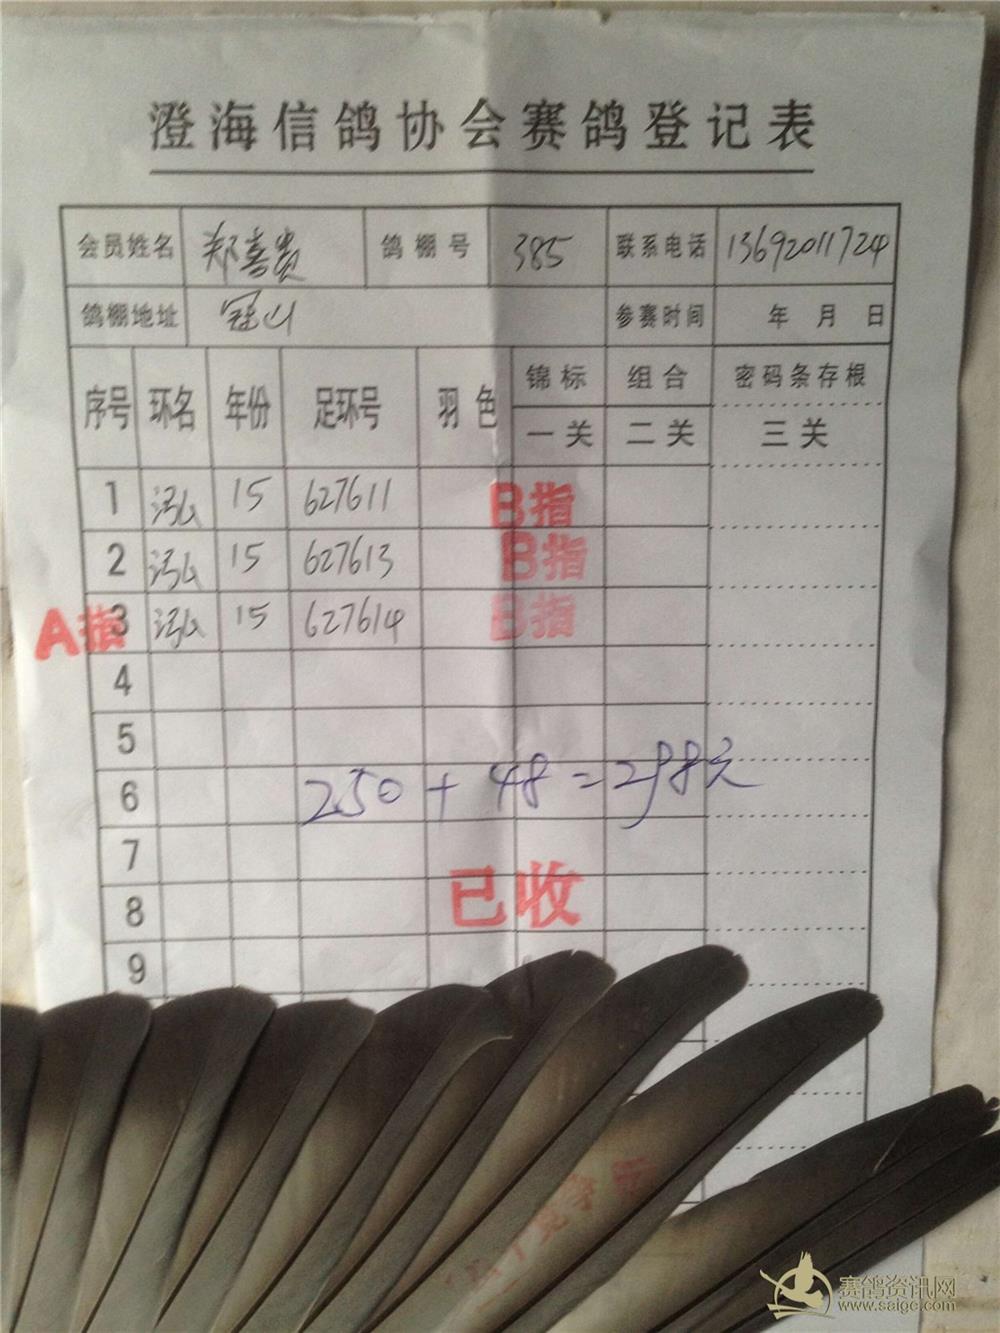 澄海信鸽协会赛鸽登记表
会员姓名 郑喜贵 鸽棚号 385 联系电话 13692011724
鸽棚地址 冠山 参赛时间 年 月 日
序号 环名 年份 足环号 羽色 锦标 组合 密码条存根
一关 二关 三关
1 泓 15 627611 B指
2 泓 15 627613 B指
A指 3 泓 15 627614 B指
4
5
6 250+48=298元
7
8 已收
9
赛鸽资讯网
www.saigc.com